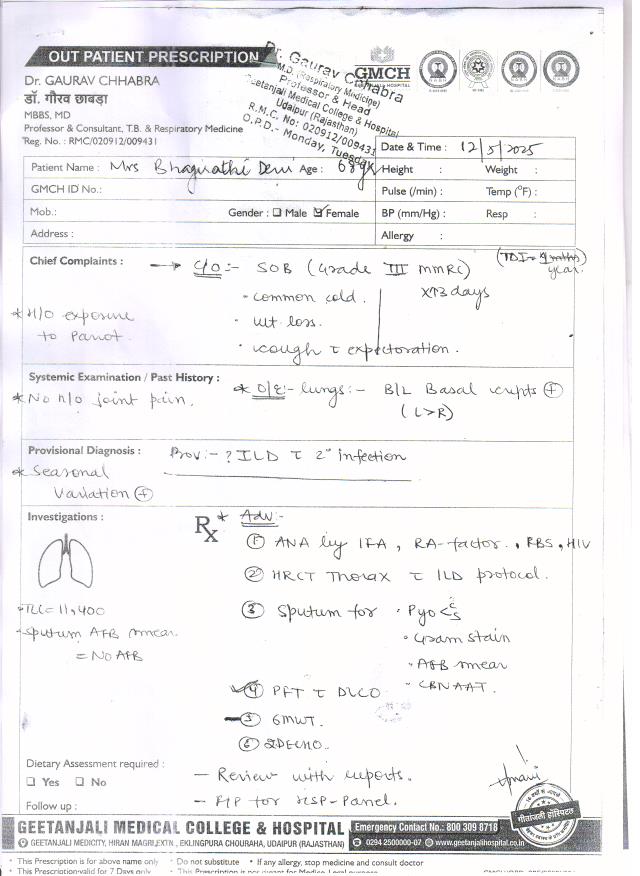 OUT PATIENT PRESCRIPTION
Dr. GAURAV CHHABRA
डॉ. गौरव छाबड़ा
MBBS, MD
Professor & Consultant, T.B. & Respiratory Medicine
Reg. No. : RMC/020912/009431
Dr. Gaurav Chhabra
M.D. (Respiratory Medicine)
Professor & Head
Geetanjali Medical College & Hospital
Udaipur (Rajasthan)
R.M.C. No: 020912/009431
O.P.D.- Monday, Tuesday
GMCH
Date & Time : 12/5/2025
Patient Name : Mrs Bhagwathi Devi Age : 68yr
Height : Weight :
GMCH ID No.:
Pulse (/min) : Temp (°F) :
Mob.: Gender : ☐ Male ☑ Female
BP (mm/Hg) : Resp :
Address :
Allergy :
Chief Complaints : → C/O :- SOB (Grade III MMRC)
year.
• common cold. x 3 days
* H/O exposure to Parrot.
• wt. loss.
• cough c̄ expectoration.
Systemic Examination / Past History :
* O/E:- lungs:- B/L Basal crepts ⊕
(L>R)
* No h/o joint pain.
Provisional Diagnosis : Prov:- ? ILD c̄ 2° infection
* Seasonal
Variation ⊕
Investigations :
Rx * Adv:-
① ANA by IFA, RA-factor., RBS, HIV
② HRCT Thorax c̄ ILD protocol.
• TLC = 11,400
③ Sputum for • Pyo < C S
• Sputum AFB smear.
= No AFB
• Gram stain
• AFB smear
• CBNAAT.
④ PFT c̄ DLCO
⑤ 6MWT.
⑥ 2DECHO.
Dietary Assessment required :
☐ Yes ☐ No
— Review with reports.
Follow up :
— F/P for resp-Panel.
गीतांजली हॉस्पिटल
GEETANJALI MEDICAL COLLEGE & HOSPITAL
Emergency Contact No.: 800 309 8718
GEETANJALI MEDICITY, HIRAN MAGRI,EXTN., EKLINGPURA CHOURAHA, UDAIPUR (RAJASTHAN)
0294 2500000-07 www.geetanjalihospital.co.in
* This Prescription is for above name only * Do not substitute * If any allergy, stop medicine and consult doctor
* This Prescription valid for 7 Days only * This Prescription is not meant for Medico Legal purpose